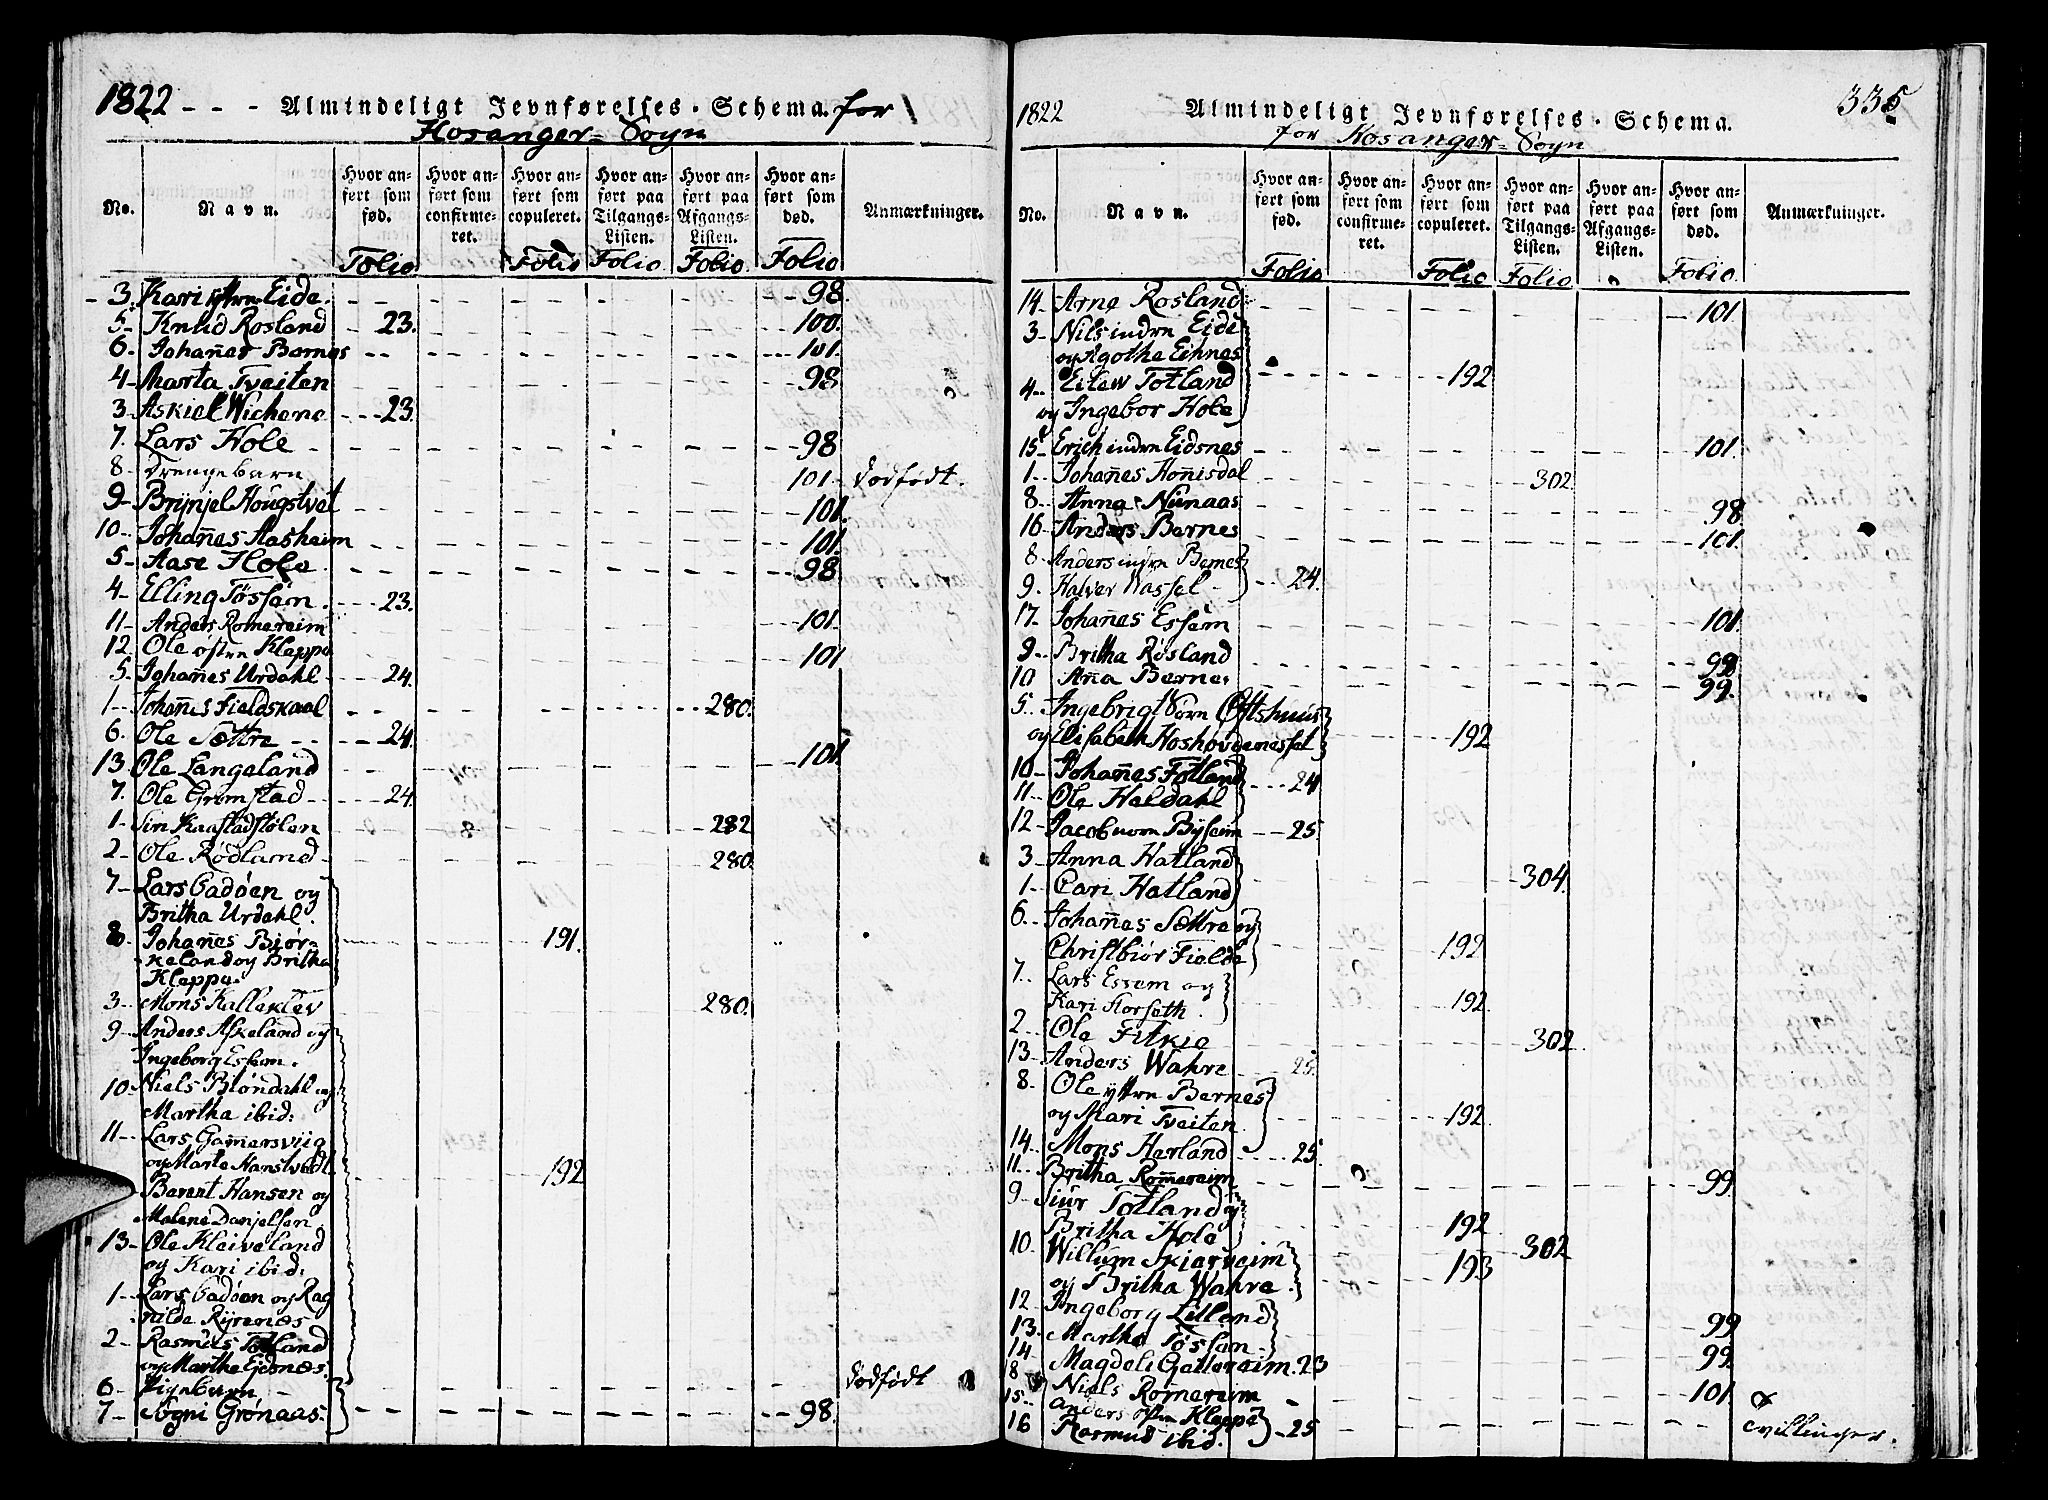 1822 - - - Almindeligt Jevnførelses-Schema. for
Hosanger-Sogn
No. Navn. Hvor anført som fød. Hvor anført som confirmeret. Hvor anført som copuleret. Hvor anført paa Tilgangs-Listen. Hvor anført paa Afgangs-Listen. Hvor anført som død. Anmærkninger.
Folio Folio Folio Folio Folio
3. Kari yttre Eide. 98.
5. Knud Rosland 23. 100.
6. Johañes Bernes 101.
4. Marta Tveiten 98
3. Askiel Wichene 23.
7. Lars Hole 98
8. Drengebarn 101. Dødfødt.
9. Brynjel Hougstvet 101.
10. Johañes Aasheim 101.
5. Aase Hole 98
4. Elling Tøssem 23.
11. Anders Romereim 101.
12. Ole østre Kleppe 101
5. Johañes Urdahl 24.
1. Johañes Fieldskaal 280.
6. Ole Sættre 24.
13. Ole Langeland 101
7. Ole Grømstad 24.
1. Siri Kaastadstølen 282
2. Ole Rødland 280.
7. Lars Gadøen og
Britha Urdahl.
8. Johañes Biør-
keland og Britha 191.
Kleppe.
3. Mons Kalleklev 280.
9. Anders Askeland og
Ingeborg Essem.
10. Niels Biøndahl og
Martha ibid:
11. Lars Gamersviig
og Marte Hanstvedt
Berent Hansen og 192
Malene Danjelsen
13. Ole Kleiveland
og Kari ibid:
1. Lars Gadøen og Rag
nilde Ryrenæs
2. Rasmus Totland
og Martha Ejdsnæs.
6. Pigebarn Dødfødt
7. Sogni Grønaas. 98.
1822 Almindeligt Jevnførelses-Schema. 335
for Hosanger-Sogn
No. Navn. Hvor anført som fød. Hvor anført som confirmeret. Hvor anført som copuleret. Hvor anført paa Tilgangs-Listen. Hvor anført paa Afgangs-Listen. Hvor anført som død. Anmærkninger.
Folio Folio Folio Folio
14. Arne Rosland 101
3. Nils indre Eide
og Agothe Eihnes
4. Eilew Totland 192
og Ingebor Hole
15. Erich indre Eidsnes 101.
1. Johañes Hoñisdal 302.
8. Anna Nünaas 98
16. Anders Bernes 101.
8. Anders indre Bernes
9. Halver Hassel 24.
17. Johañes Essem 101.
9. Britha Røsland 98
10 Aña Berne 99.
5. Ingebrigt Sørn Øftshuus
og Elisabeth Hoshovdenessel 192
10. Johañes Totland
11. Ole Haldahl 24
12. Jacob norn Bysem 25.
3. Anna Hatland
1. Cari Hatland 304.
6. Johañes Sættre og
Christbiør Fielde 192
7. Lars Essem og
Kari Horseth 192.
2. Ole Fitkie 302
13. Anders Wahre 25.
8. Ole yttre Bernes
og Mari Tveiten 192.
14. Mons Herland 25.
11. Britha Romereim 99.
9. Siur Totland og
Britha Hole 192
10. Willum Skjerveim 302
og Britha Wahre. 193
12. Ingeborg Lilland
13. Martha Tøssem 99
14 Magdeli Gallereim. 23 99
18 Niels Romereim 101.
15. Anders østre Kleppe
16 Rasmus ibid. 25 Tvillinger.